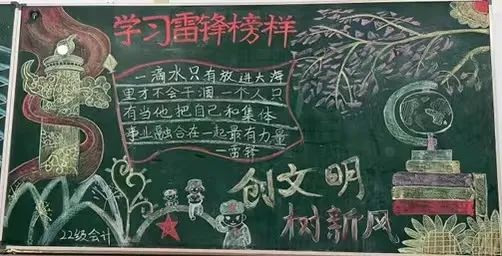 学习雷锋榜样
一滴水只有放进大海
里才不会干涸一个人只
有当他把自己和集体
事业融合在一起最有力量
—雷锋
创文明
树新风
22级会计